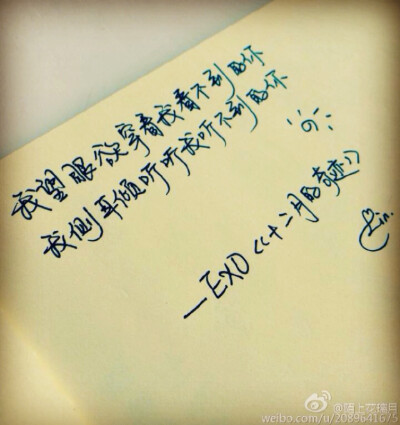 我望眼欲穿看我看不到的你
我侧耳倾听听我听不到的你
—EXO《十二月的奇迹》
Lin.
@陌上花摘月
weibo.com/u/2089641675